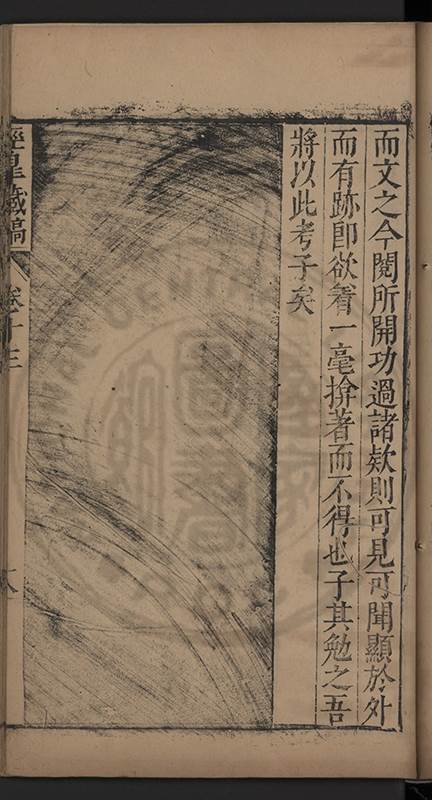 而文之今閱所開功過諸欵則可見可聞顯於外
而有跡卽欲着一毫揜著而不得也子其勉之吾
將以此考子矣
涇臯藏稿
卷十三
八